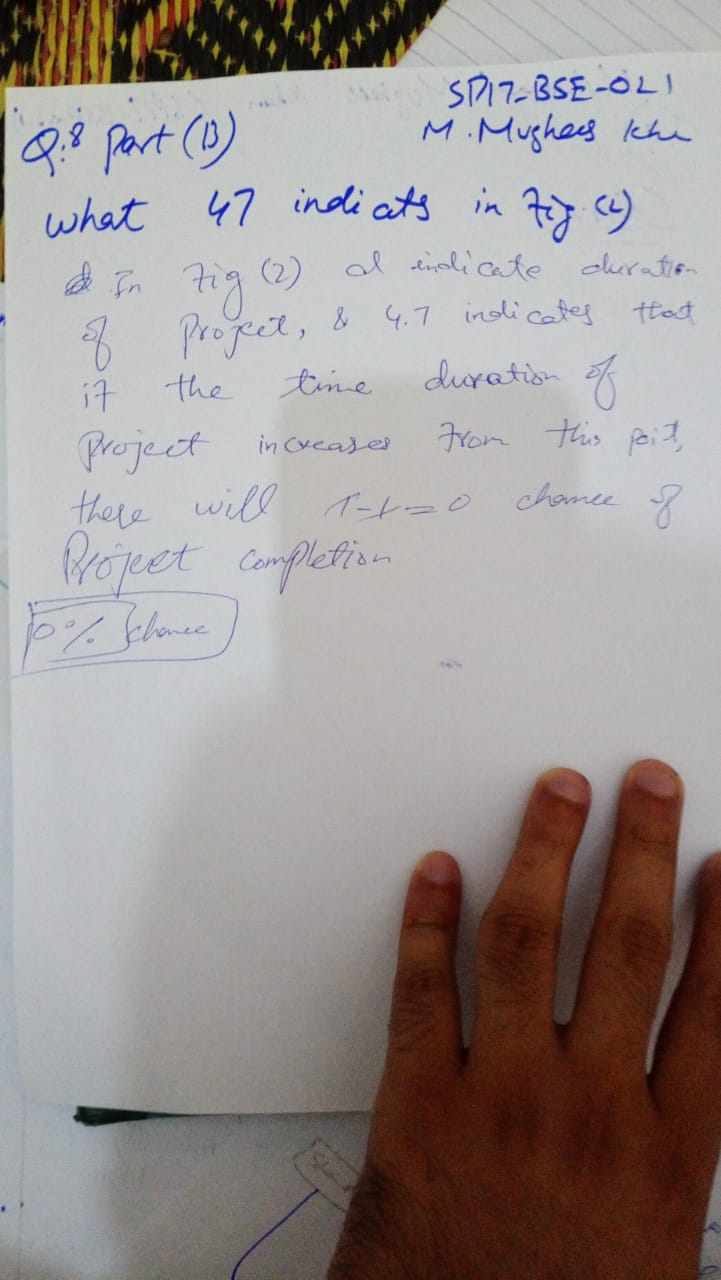 SP17-BSE-021
Q:8 Part (B)
M. Mughees Kha
what 47 indicats in Fig (2)
In Fig (2) d indicate duration
of Project, & 4.7 indicates that
if the time duration of
Project increases from this poit,
there will 1-1=0 chance of
Project completion
0% chance